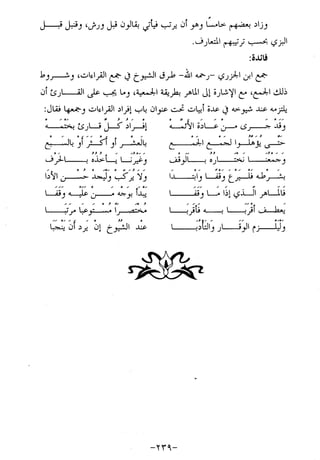 وزاد بعضهم خامسًا وهو أن يرتب فيأتي بقالون قبل ورش، وقنبل قبل
البزي بحسب ترتيبهم
فائدة:
ابن الجزري -رحمه الله- طرق الشروع في جمع القراءات، وشروط
ذلك الجمع، ثم أشار إلى الماهر بطريقة الجمع، وما يجب على القارئ أن
يلتزمه عند شروعه في عدة أبيات تحت عنوان باب إفراد القراءات وجمعها فقال:
وقد جرى من عادة الأئمة إفراد كل قارئ بختمه
حتى يؤهلوا لجمع الجمع بالعشر أو أكثر أو بالسبع
وجمعنا نختاره بالوقف وغيرنا يأخذه بالحرف
بشرطه فليرع وقفا وابتدا ولا يركب وليجد حسن الأدا
فالماهر الذي إذا ما وقفا يبدا بوجه من عليه وقفا
يعطف أقربا به فأقربا مختصرا مستوعبا مرتبا
وليلزم الوقار والتأدبا عند الشيوخ إن يرد أن ينجبا
-٢٣٩-